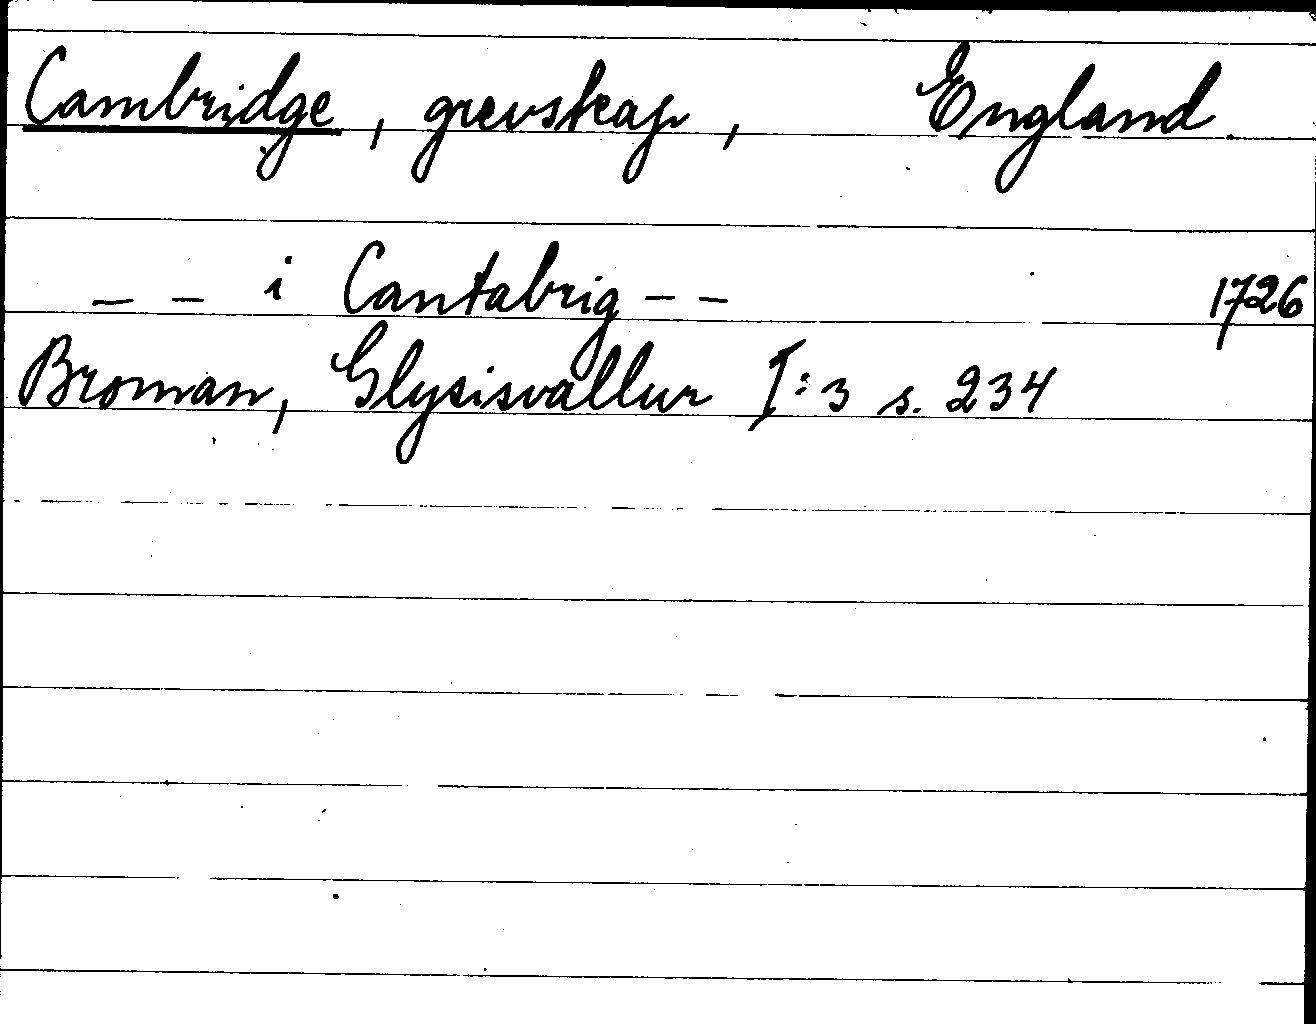 Cambridge, grevskap, England
_ _ i Cantabrig - - 1726
Broman, Glysisvallur I:3 s. 234